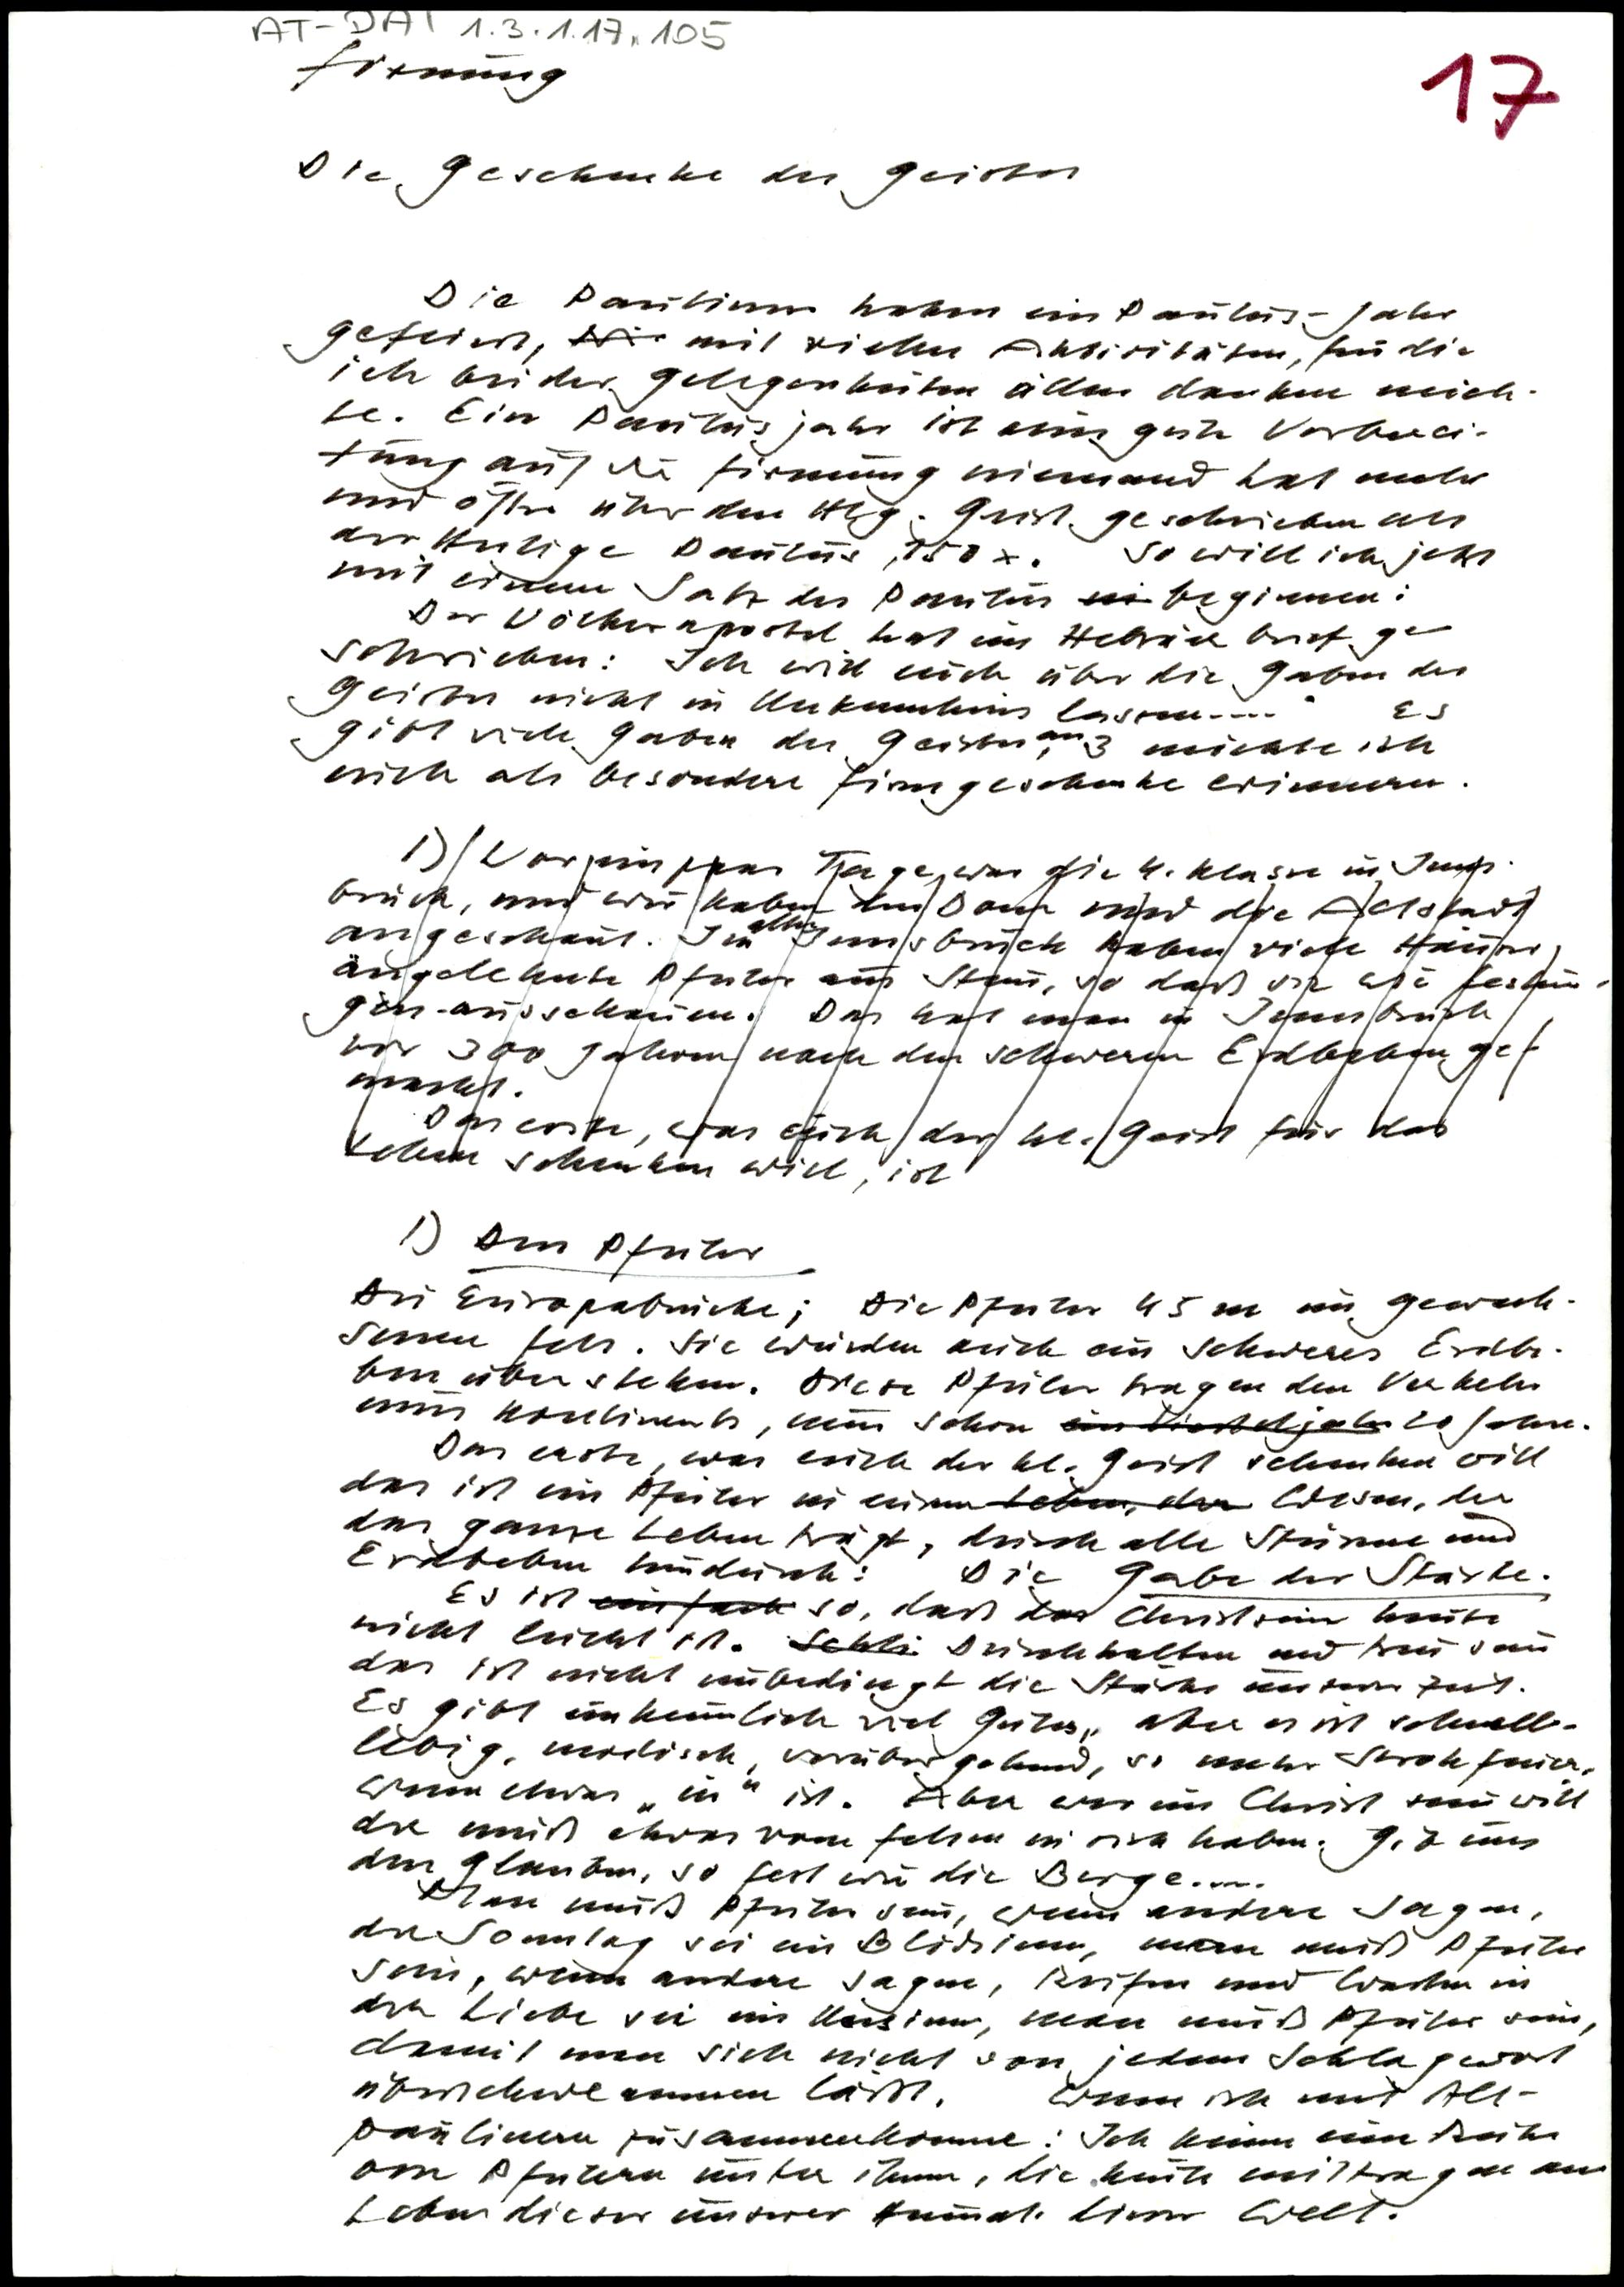 AT-DAI 1.3.1.17.105
Firmung
17
Die Geschenke des Geistes
Die Pauliner haben ein Paulus-Jahr
gefeiert, mit vielen Aktivitäten, für die
ich bei der Gelegenheiten allen danken möch-
te. Ein Paulusjahr ist eine gute Vorberei-
tung auf die Firmung niemand hat mehr
und öfter über den Hlg. Geist geschrieben als
der Heilige Paulus, 150 x. So will ich jetzt
mit einem Satz des Paulus beginnen:
Der Völkerapostel hat im Hebräerbrief ge
schrieben: Ich will euch über die Gaben des
Geistes nicht in Unkenntnis lassen...." Es
gibt viele Gaben des Geistes, an 3 möchte ich
euch als besondere Firmgeschenke erinnern.
1) Vor ein paar Tage war die 4. Klasse in Inns-
bruck, und wir haben den Dom und die Altstadt
angeschaut. In alten Innsbruck haben viele Häuser,
angelehnte Pfeiler aus Stein, so daß sie wie Festun-
gen ausschauen. Das hat man in Innsbruck
vor 300 Jahren nach den schweren Erdbeben ge-
macht.
Das erste, was euch der hl. Geist für das
Leben schenken will, ist
1) Den Pfeiler
Die Europabrücke; Die Pfeiler 45 m im gewach-
senen Fels. Sie würden auch ein schweres Erdbe-
ben überstehen. Diese Pfeiler tragen den Verkehr
eines Kontinents, nun schon ein Vierteljah 20 Jahre.
Das erste, was euch der hl. Geist schenken will
das ist ein Pfeiler in eurem Leben, der Wesen, der
das ganze Leben trägt, durch alle Stürme und
Erdbeben hindurch: Die Gabe der Stärke.
Es ist einfach so, daß das Christsein heute
nicht leicht ist. Schli Durchhalten und treu sein
das ist nicht unbedingt die Stärke unserer Zeit.
Es gibt unheimlich viel Gutes, aber es ist schnell-
lebig, modisch, vorübergehend, so mehr Strohfeuer,
wenn etwas „in" ist. Aber wer ein Christ sein will
der muß etwas vom Felsen in sich haben. Gib uns
den Glauben, so fest wie die Berge....
Man muß Pfeiler sein, wenn andere sagen,
der Sonntag sei ein Blödsinn, man muß Pfeiler
sein, wenn andere sagen, Reifen und Warten in
der Liebe sei ein Unsinn, man muß Pfeiler sein,
damit man sich nicht von jedem Schlagwort
überschwemmen läßt. Wenn ich mit Alt-
paulinern zusammenkomme: Ich kenne eine Reihe
von Pfeilern unter ihnen, die heute mittragen am
Leben dieser unserer Welt.